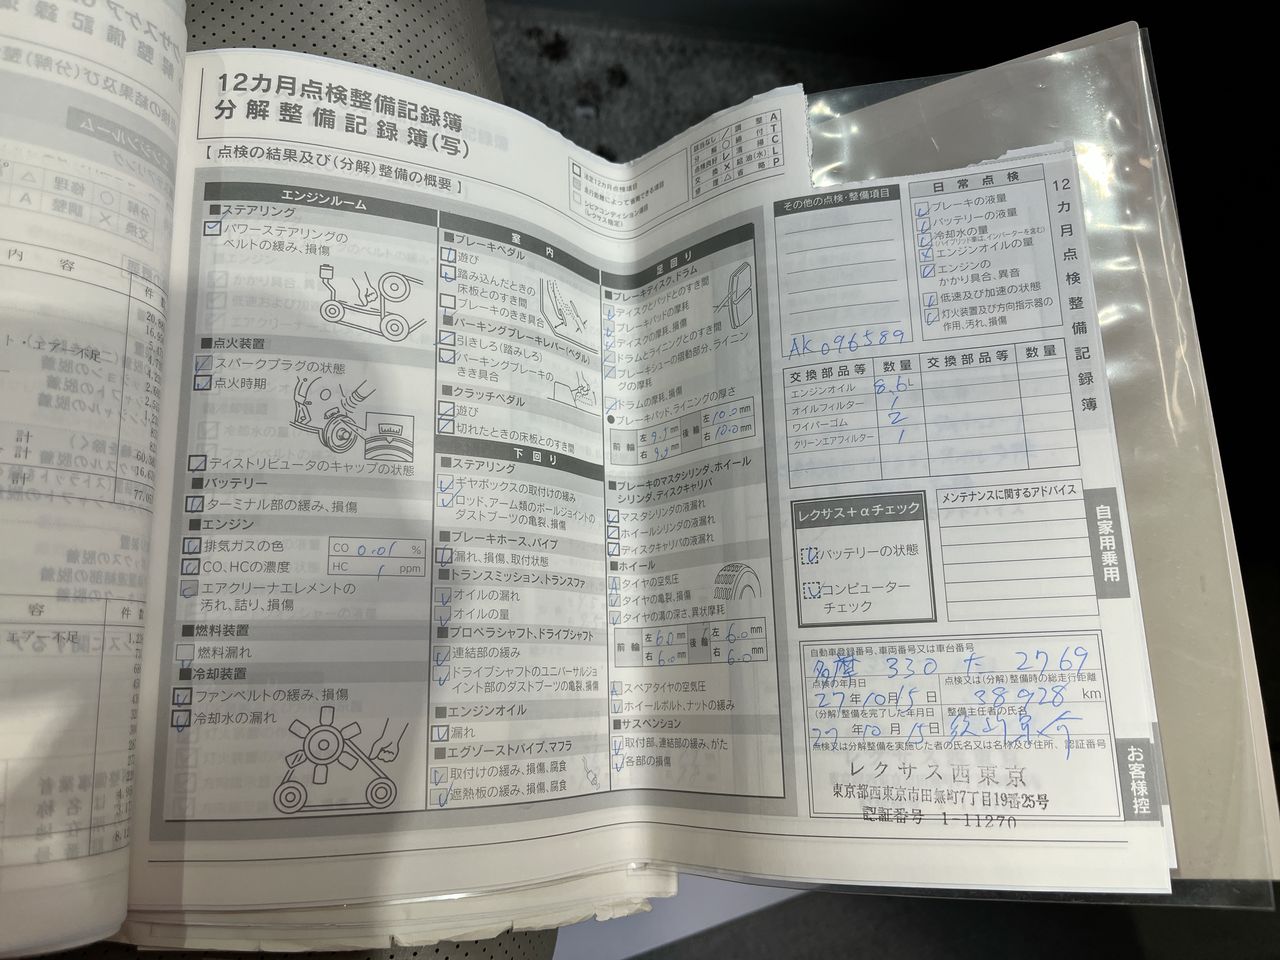 12カ月点検整備記録簿
分解整備記録簿(写)
【 点検の結果及び(分解)整備の概要 】
エンジンルーム
■ステアリング
パワーステアリングの
ベルトの緩み、損傷
■点火装置
スパークプラグの状態
点火時期
ディストリビュータのキャップの状態
■バッテリー
ターミナル部の緩み、損傷
■エンジン
排気ガスの色
CO、HCの濃度
CO 0.01 %
HC 1 ppm
エアクリーナエレメントの
汚れ、詰り、損傷
■燃料装置
燃料漏れ
■冷却装置
ファンベルトの緩み、損傷
冷却水の漏れ
室内
■ブレーキペダル
遊び
踏み込んだときの
床板とのすき間
ブレーキのきき具合
■パーキングブレーキレバー(ペダル)
引きしろ(踏みしろ)
パーキングブレーキの
きき具合
■クラッチペダル
遊び
切れたときの床板とのすき間
下回り
■ステアリング
ギヤボックスの取付けの緩み
ロッド、アーム類のボールジョイントの
ダストブーツの亀裂、損傷
■ブレーキホース、パイプ
漏れ、損傷、取付状態
■トランスミッション、トランスファ
オイルの漏れ
オイルの量
■プロペラシャフト、ドライブシャフト
連結部の緩み
ドライブシャフトのユニバーサルジョ
イント部のダストブーツの亀裂、損傷
■エンジンオイル
漏れ
■エグゾーストパイプ、マフラ
取付けの緩み、損傷、腐食
遮熱板の緩み、損傷、腐食
足回り
■ブレーキディスク、ドラム
ディスクとパッドとのすき間
ブレーキパッドの摩耗
ディスクの摩耗、損傷
ドラムとライニングとのすき間
ブレーキシューの摺動部分、ライニン
グの摩耗
ドラムの摩耗、損傷
●ブレーキパッド、ライニングの厚さ
前輪 左 9.5 mm 後輪 左 10.0 mm
右 9.5 mm 右 10.0 mm
■ブレーキのマスタシリンダ、ホイール
シリンダ、ディスクキャリパ
マスタシリンダの液漏れ
ホイールシリンダの液漏れ
ディスクキャリパの液漏れ
■ホイール
タイヤの空気圧
タイヤの亀裂、損傷
タイヤの溝の深さ、異状摩耗
前輪 左 6.0 mm 後輪 左 6.0 mm
右 6.0 mm 右 6.0 mm
スペアタイヤの空気圧
ホイールボルト、ナットの緩み
■サスペンション
取付部、連結部の緩み、がた
各部の損傷
その他の点検・整備項目
AK096589
日常点検
ブレーキの液量
バッテリーの液量
冷却水の量
(ハイブリッド車は、インバーターを含む)
エンジンオイルの量
エンジンの
かかり具合、異音
低速及び加速の状態
灯火装置及び方向指示器の
作用、汚れ、損傷
交換部品等 数量 交換部品等 数量
エンジンオイル 8.6L
オイルフィルター 1
ワイパーゴム 2
クリーンエアフィルター 1
レクサス+αチェック
バッテリーの状態
コンピューター
チェック
メンテナンスに関するアドバイス
自動車登録番号、車両番号又は車台番号
多摩 330 た 2769
点検の年月日 点検又は(分解)整備時の総走行距離
27年10月15日 38928 km
(分解)整備を完了した年月日 整備主任者の氏名
27年10月15日
点検又は分解整備を実施した者の氏名又は名称及び住所、認証番号
レクサス西東京
東京都西東京市田無町7丁目19番25号
認証番号 1-11270
12カ月点検整備記録簿
自家用乗用
お客様控